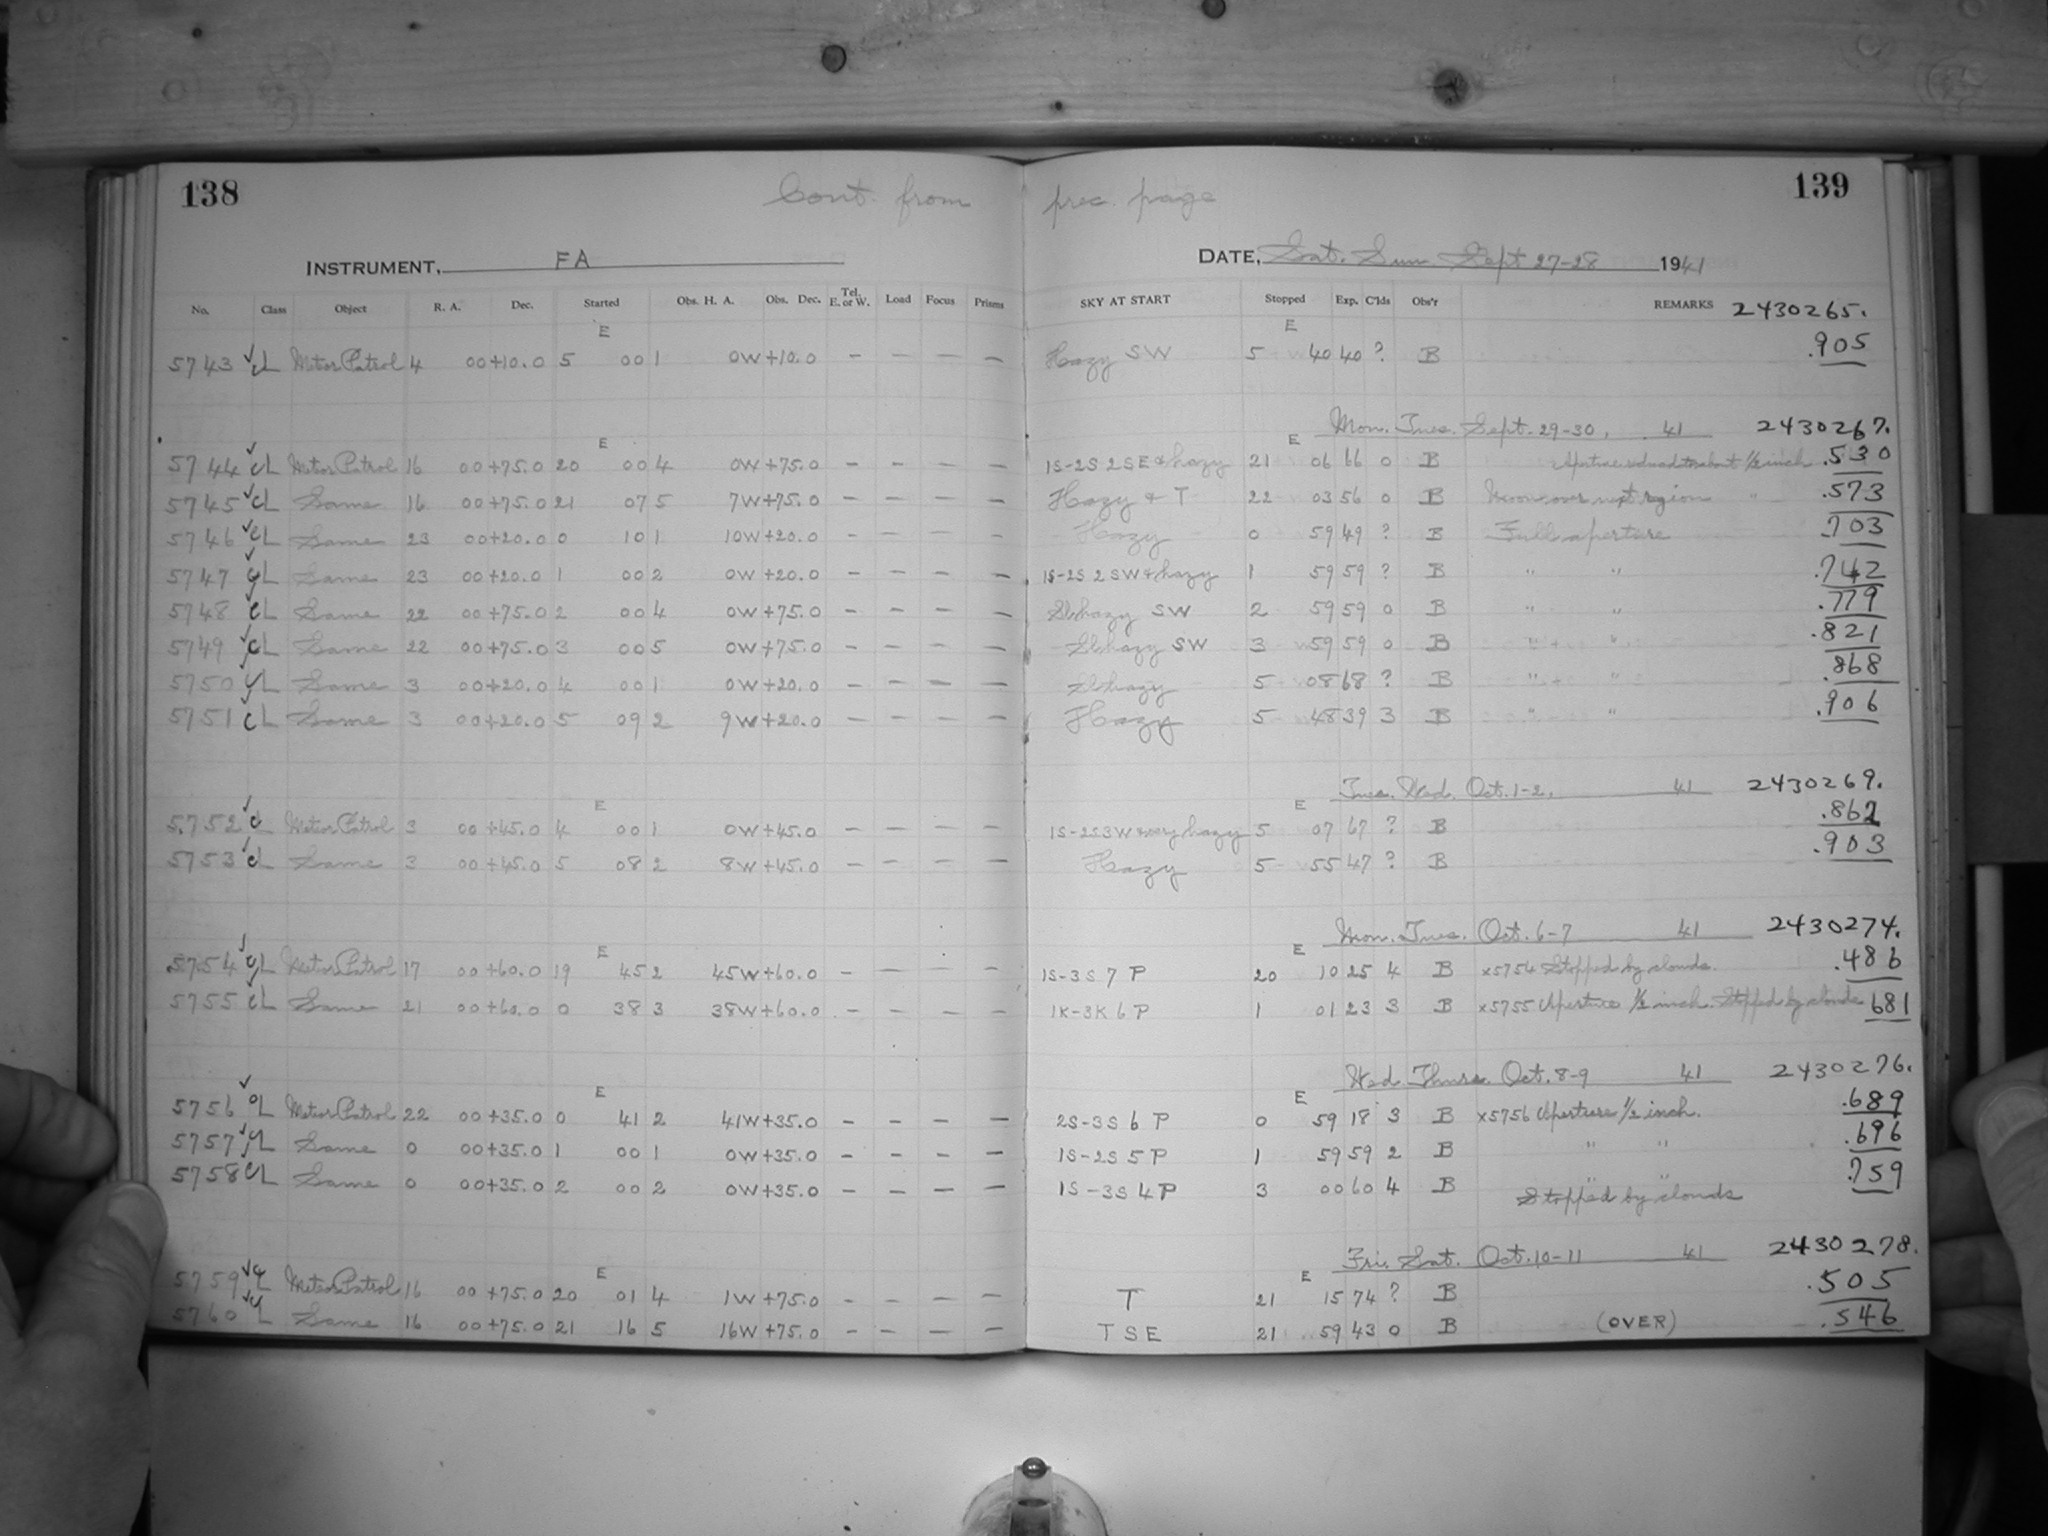 138 Cont. from prec. page 139
INSTRUMENT, FA DATE, Sat. Sun Sept 27-28 1941
No. Class Object R. A. Dec. Started Obs. H. A. Obs. Dec. Tel. E. or W. Load Focus Prisms SKY AT START Stopped Exp. C'lds Obs'r REMARKS 2430265.
E E
5743 ✓ cL Meteor Patrol 4 00 +10.0 5 00 1 0W +10.0 - - - - Hazy SW 5 40 40 ? B .905
Mon. Tues. Sept. 29-30, 41 2430267.
E E
5744 ✓ cL Meteor Patrol 16 00 +75.0 20 00 4 0W +75.0 - - - - 1S-2S 2SE & hazy 21 06 66 0 B Aperture reduced to about 1/2 inch .530
5745 ✓ cL Same 16 00 +75.0 21 07 5 7W +75.0 - - - - Hazy & T 22 03 56 0 B Moon over next region " .573
5746 ✓ cL Same 23 00 +20.0 0 10 1 10W +20.0 - - - - Hazy 0 59 49 ? B Full aperture .703
5747 ✓ cL Same 23 00 +20.0 1 00 2 0W +20.0 - - - - 1S-2S 2SW & hazy 1 59 59 ? B " " .742
5748 ✓ cL Same 22 00 +75.0 2 00 4 0W +75.0 - - - - Sl hazy SW 2 59 59 0 B " " .779
5749 ✓ cL Same 22 00 +75.0 3 00 5 0W +75.0 - - - - Sl hazy SW 3 59 59 0 B " " .821
5750 ✓ cL Same 3 00 +20.0 4 00 1 0W +20.0 - - - - Sl hazy 5 08 68 ? B " " .868
5751 ✓ cL Same 3 00 +20.0 5 09 2 9W +20.0 - - - - Hazy 5 48 39 3 B " " .906
Tues. Wed. Oct. 1-2, 41 2430269.
E E
5752 ✓ cL Meteor Patrol 3 00 +45.0 4 00 1 0W +45.0 - - - - 1S-2S 3W & very hazy 5 07 67 ? B .862
5753 ✓ cL Same 3 00 +45.0 5 08 2 8W +45.0 - - - - Hazy 5 55 47 ? B .903
Mon. Tues. Oct. 6-7 41 2430274.
E E
5754 ✓ cL Meteor Patrol 17 00 +60.0 19 45 2 45W +60.0 - - - - 1S-3S 7 P 20 10 25 4 B x5754 Stopped by clouds. .486
5755 ✓ cL Same 21 00 +60.0 0 38 3 38W +60.0 - - - - 1K-3K 6 P 1 01 23 3 B x5755 Aperture 1/2 inch. Stopped by clouds 681
Wed. Thurs. Oct. 8-9 41 2430276.
E E
5756 ✓ cL Meteor Patrol 22 00 +35.0 0 41 2 41W +35.0 - - - - 2S-3S 6 P 0 59 18 3 B x5756 Aperture 1/2 inch. .689
5757 ✓ cL Same 0 00 +35.0 1 00 1 0W +35.0 - - - - 1S-2S 5 P 1 59 59 2 B " " .696
5758 cL Same 0 00 +35.0 2 00 2 0W +35.0 - - - - 1S-3S 4 P 3 00 60 4 B " " Stopped by clouds .759
Fri. Sat. Oct. 10-11 41 2430278.
E E
5759 ✓ cL Meteor Patrol 16 00 +75.0 20 01 4 1W +75.0 - - - - T 21 15 74 ? B .505
5760 ✓ cL Same 16 00 +75.0 21 16 5 16W +75.0 - - - - T SE 21 59 43 0 B (OVER) .546